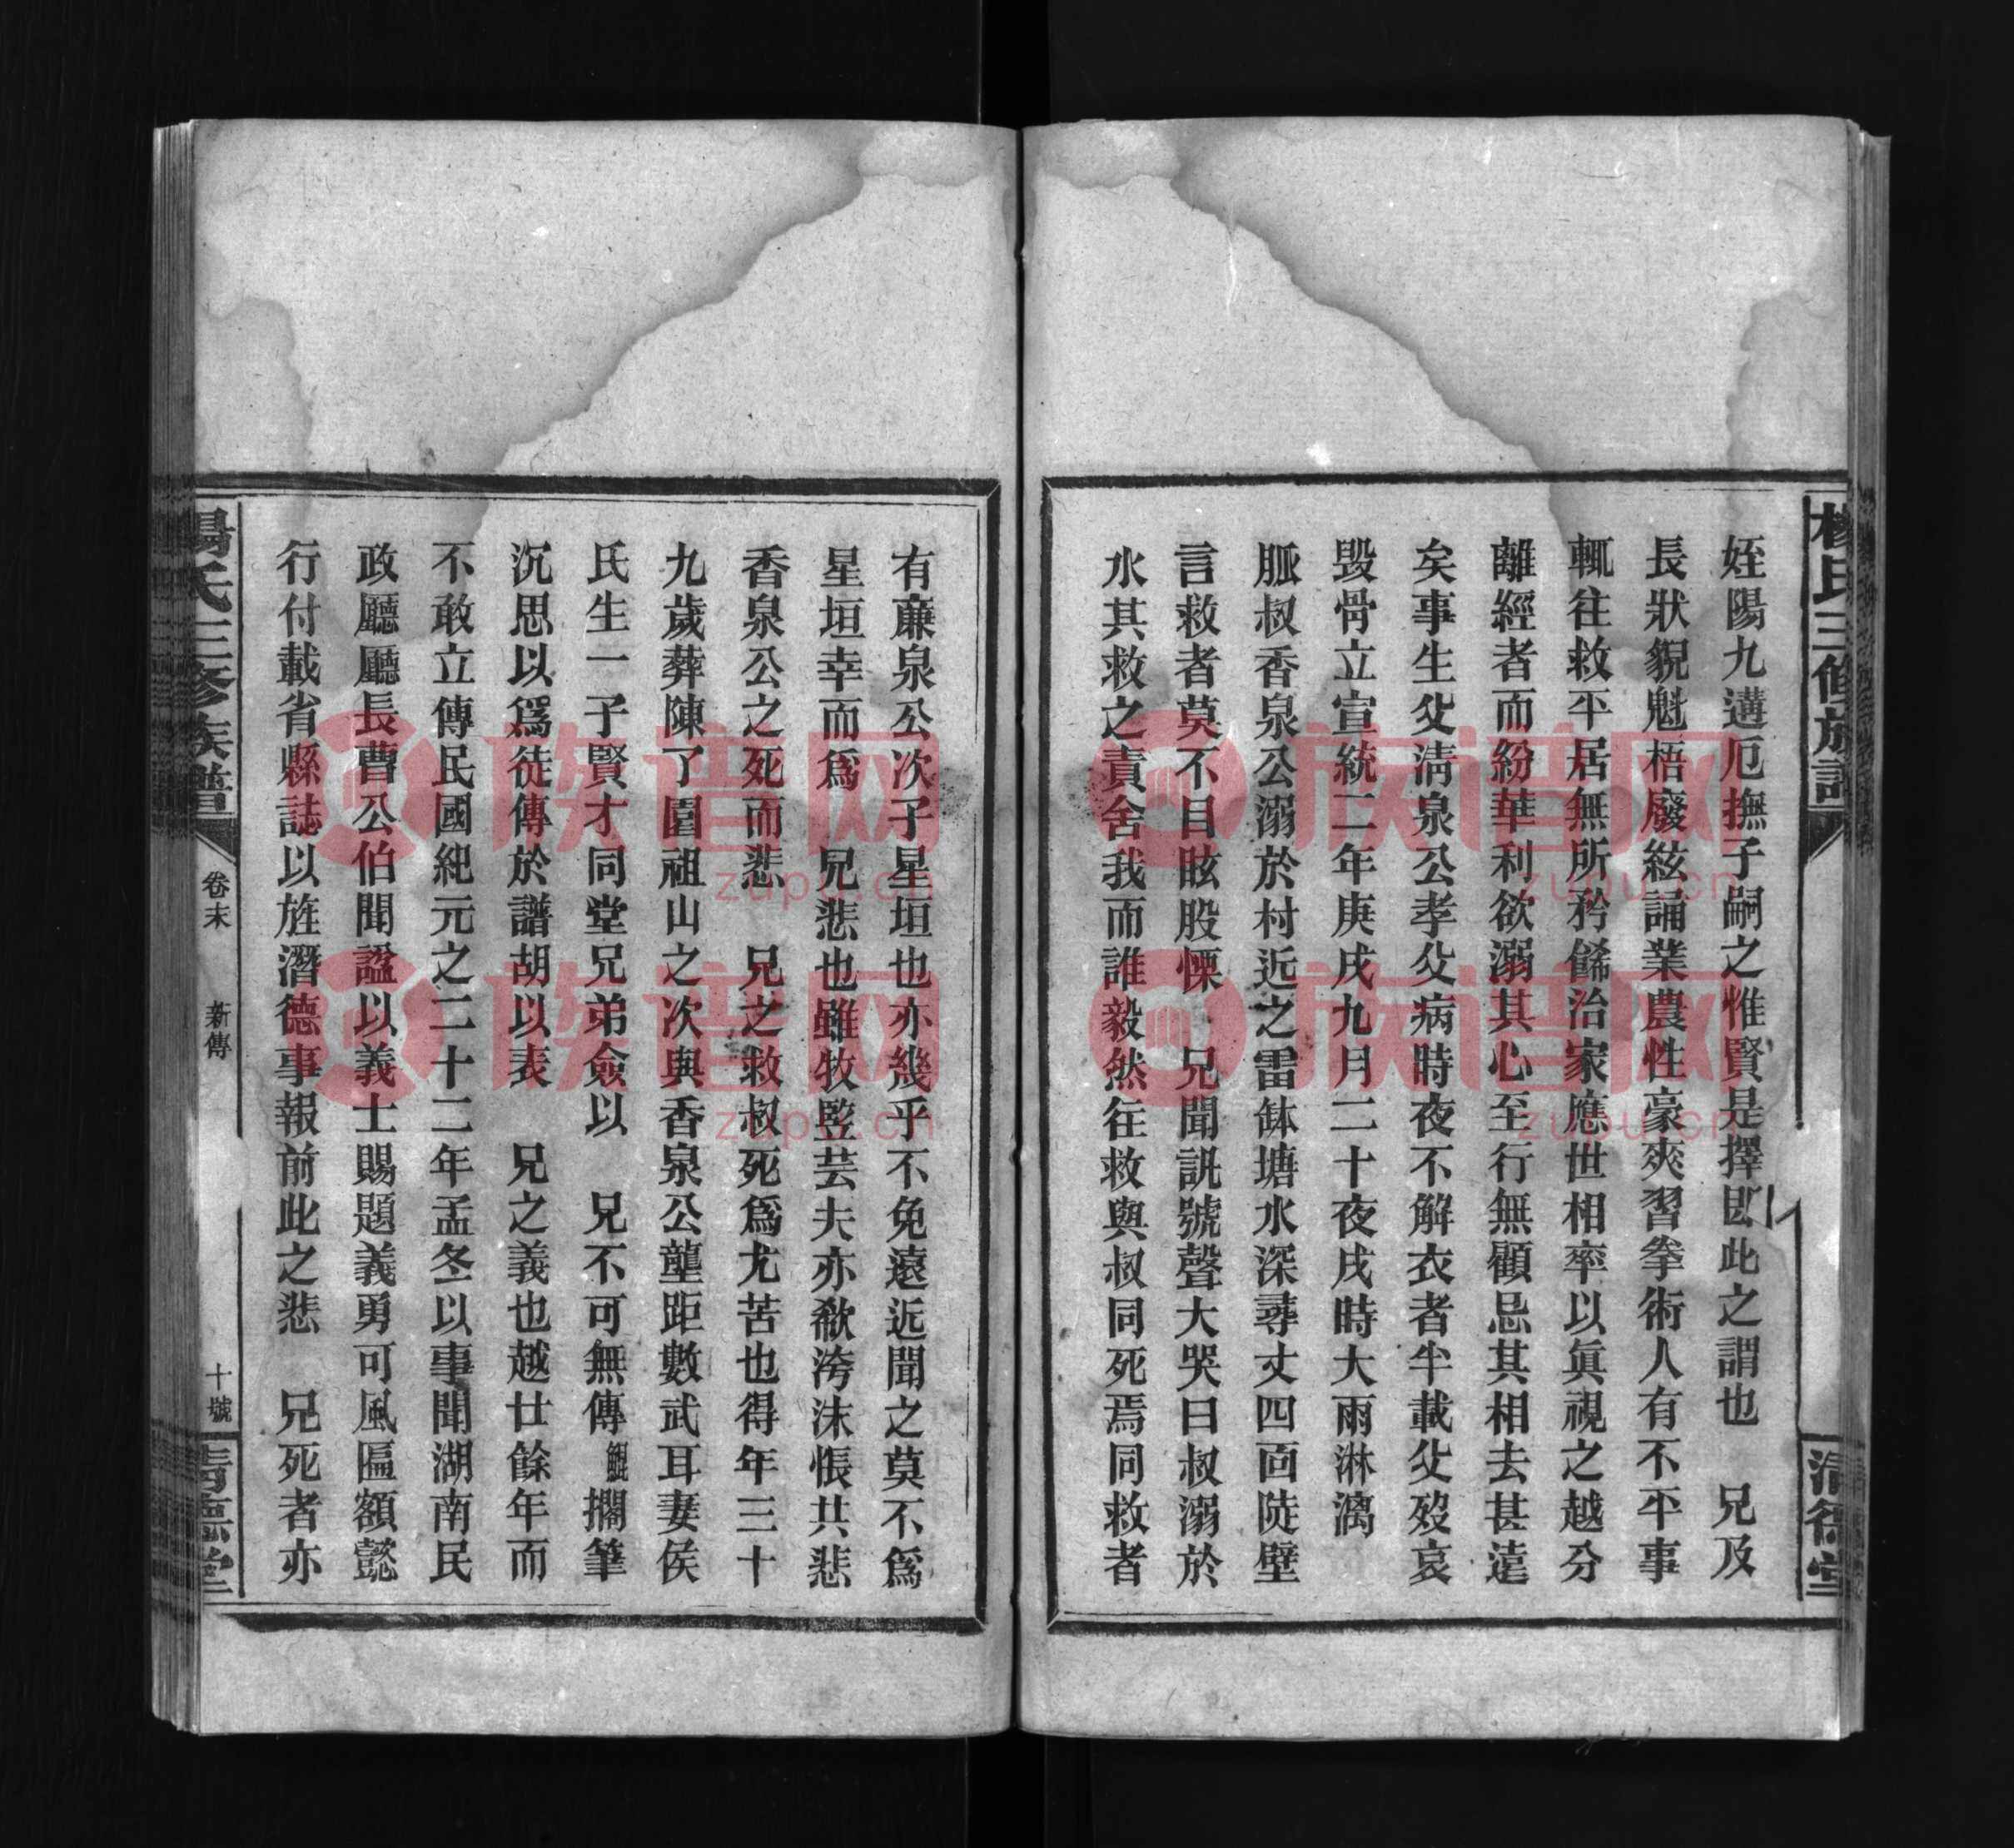 楊氏三修族譜
清德堂
姪陽九遘厄撫子嗣之惟賢是擇即此之謂也　兄及
長狀貌魁梧廢絃誦業農性豪爽習拳術人有不平事
輒往救平居無所矜餙治家應世相率以眞視之越分
離經者而紛華利欲溺其心至行無顧忌其相去甚遠
矣事生父淸泉公孝父病時夜不解衣者半載父歿哀
毀骨立宣統二年庚戌九月二十夜戌時大雨淋漓
脈叔香泉公溺於村近之雷鉢塘水深尋丈四面陡壁
言救者莫不目眩股慄　兄聞訊號聲大哭曰叔溺於
水其救之責舍我而誰毅然往救與叔同死焉同救者
有廉泉公次子星垣也亦幾乎不免遠近聞之莫不爲
星垣幸而爲　兄悲也雖牧豎芸夫亦欷洿沫悵共悲
香泉公之死而悲　兄之救叔死爲尤苦也得年三十
九歲葬陳了園祖山之次與香泉公壟距數武耳妻侯
氏生一子賢才同堂兄弟僉以　兄不可無傳鯤擱筆
沉思以爲徒傳於譜胡以表　兄之義也越廿餘年而
不敢立傳民國紀元之二十二年孟冬以事聞湖南民
政廳廳長曹公伯聞諡以義士賜題義勇可風匾額懿
行付載省縣誌以旌潛德事報前此之悲　兄死者亦
楊氏三修族譜
卷末
新傳
十號
淸德堂
族谱网
zupu.cn
族谱网
zupu.cn
族谱网
zupu.cn
族谱网
zupu.cn